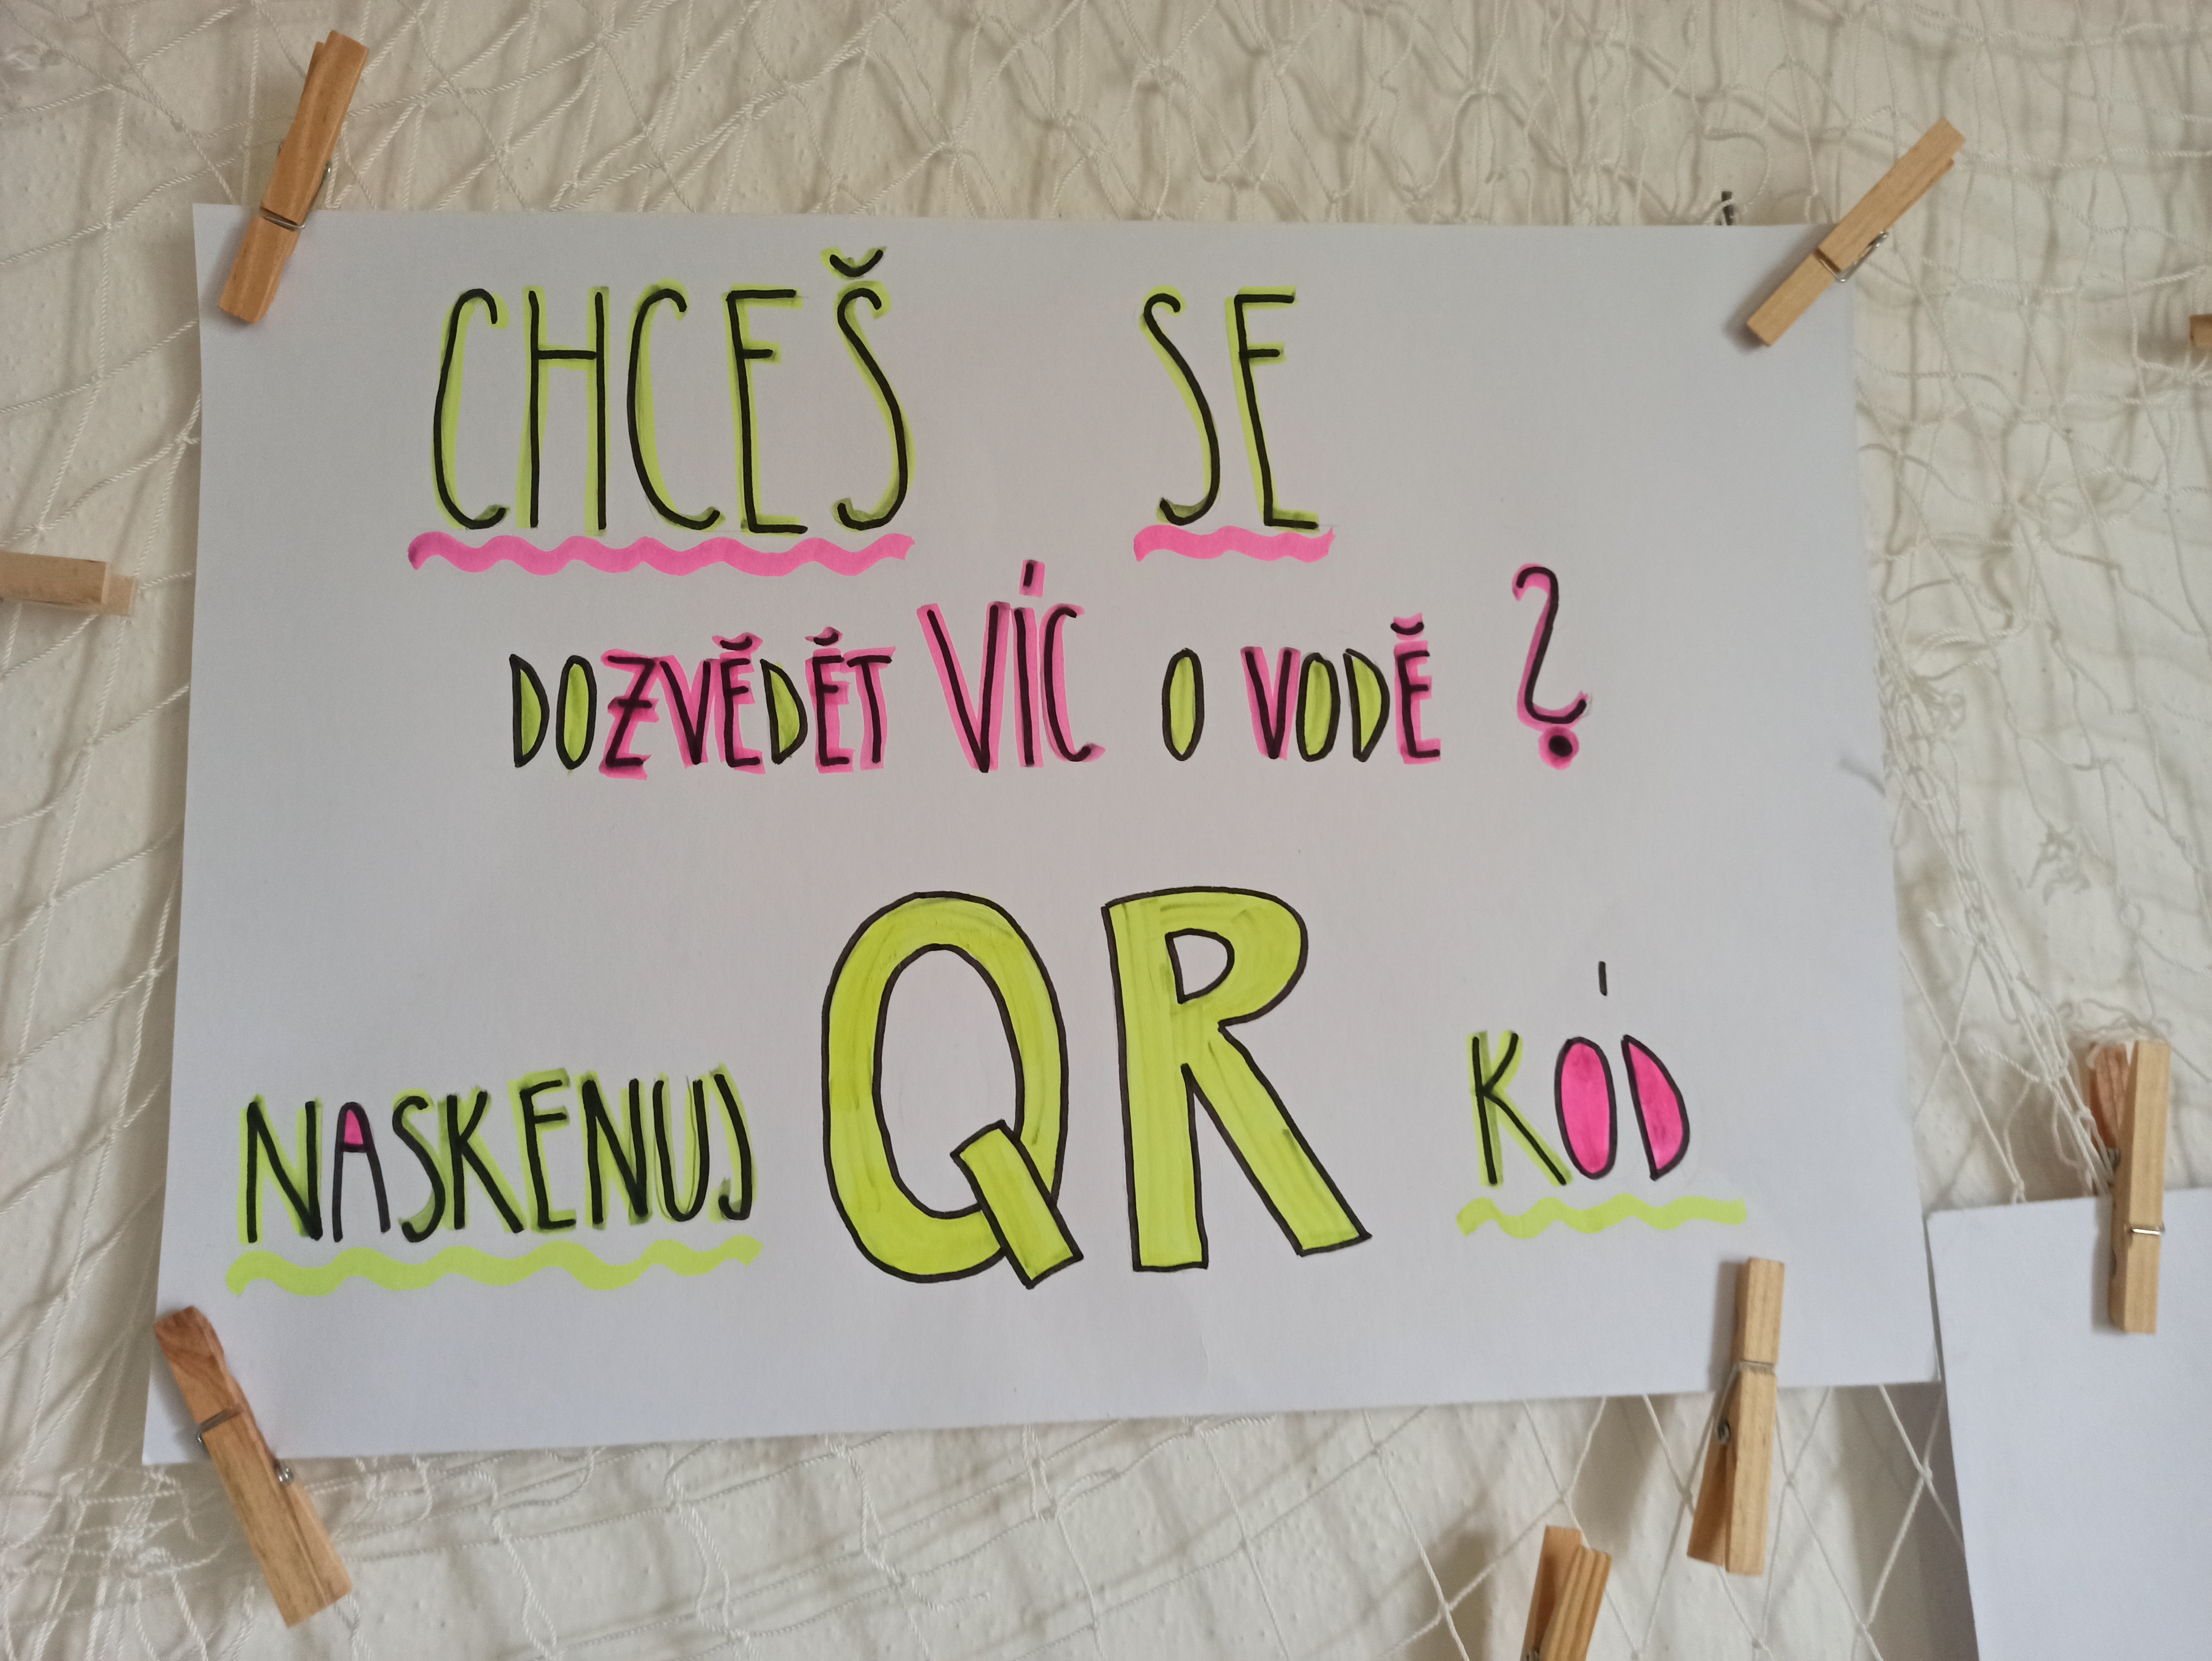 CHCEŠ SE
DOZVĚDĚT VÍC O VODĚ ?
NASKENUJ QR KÓD